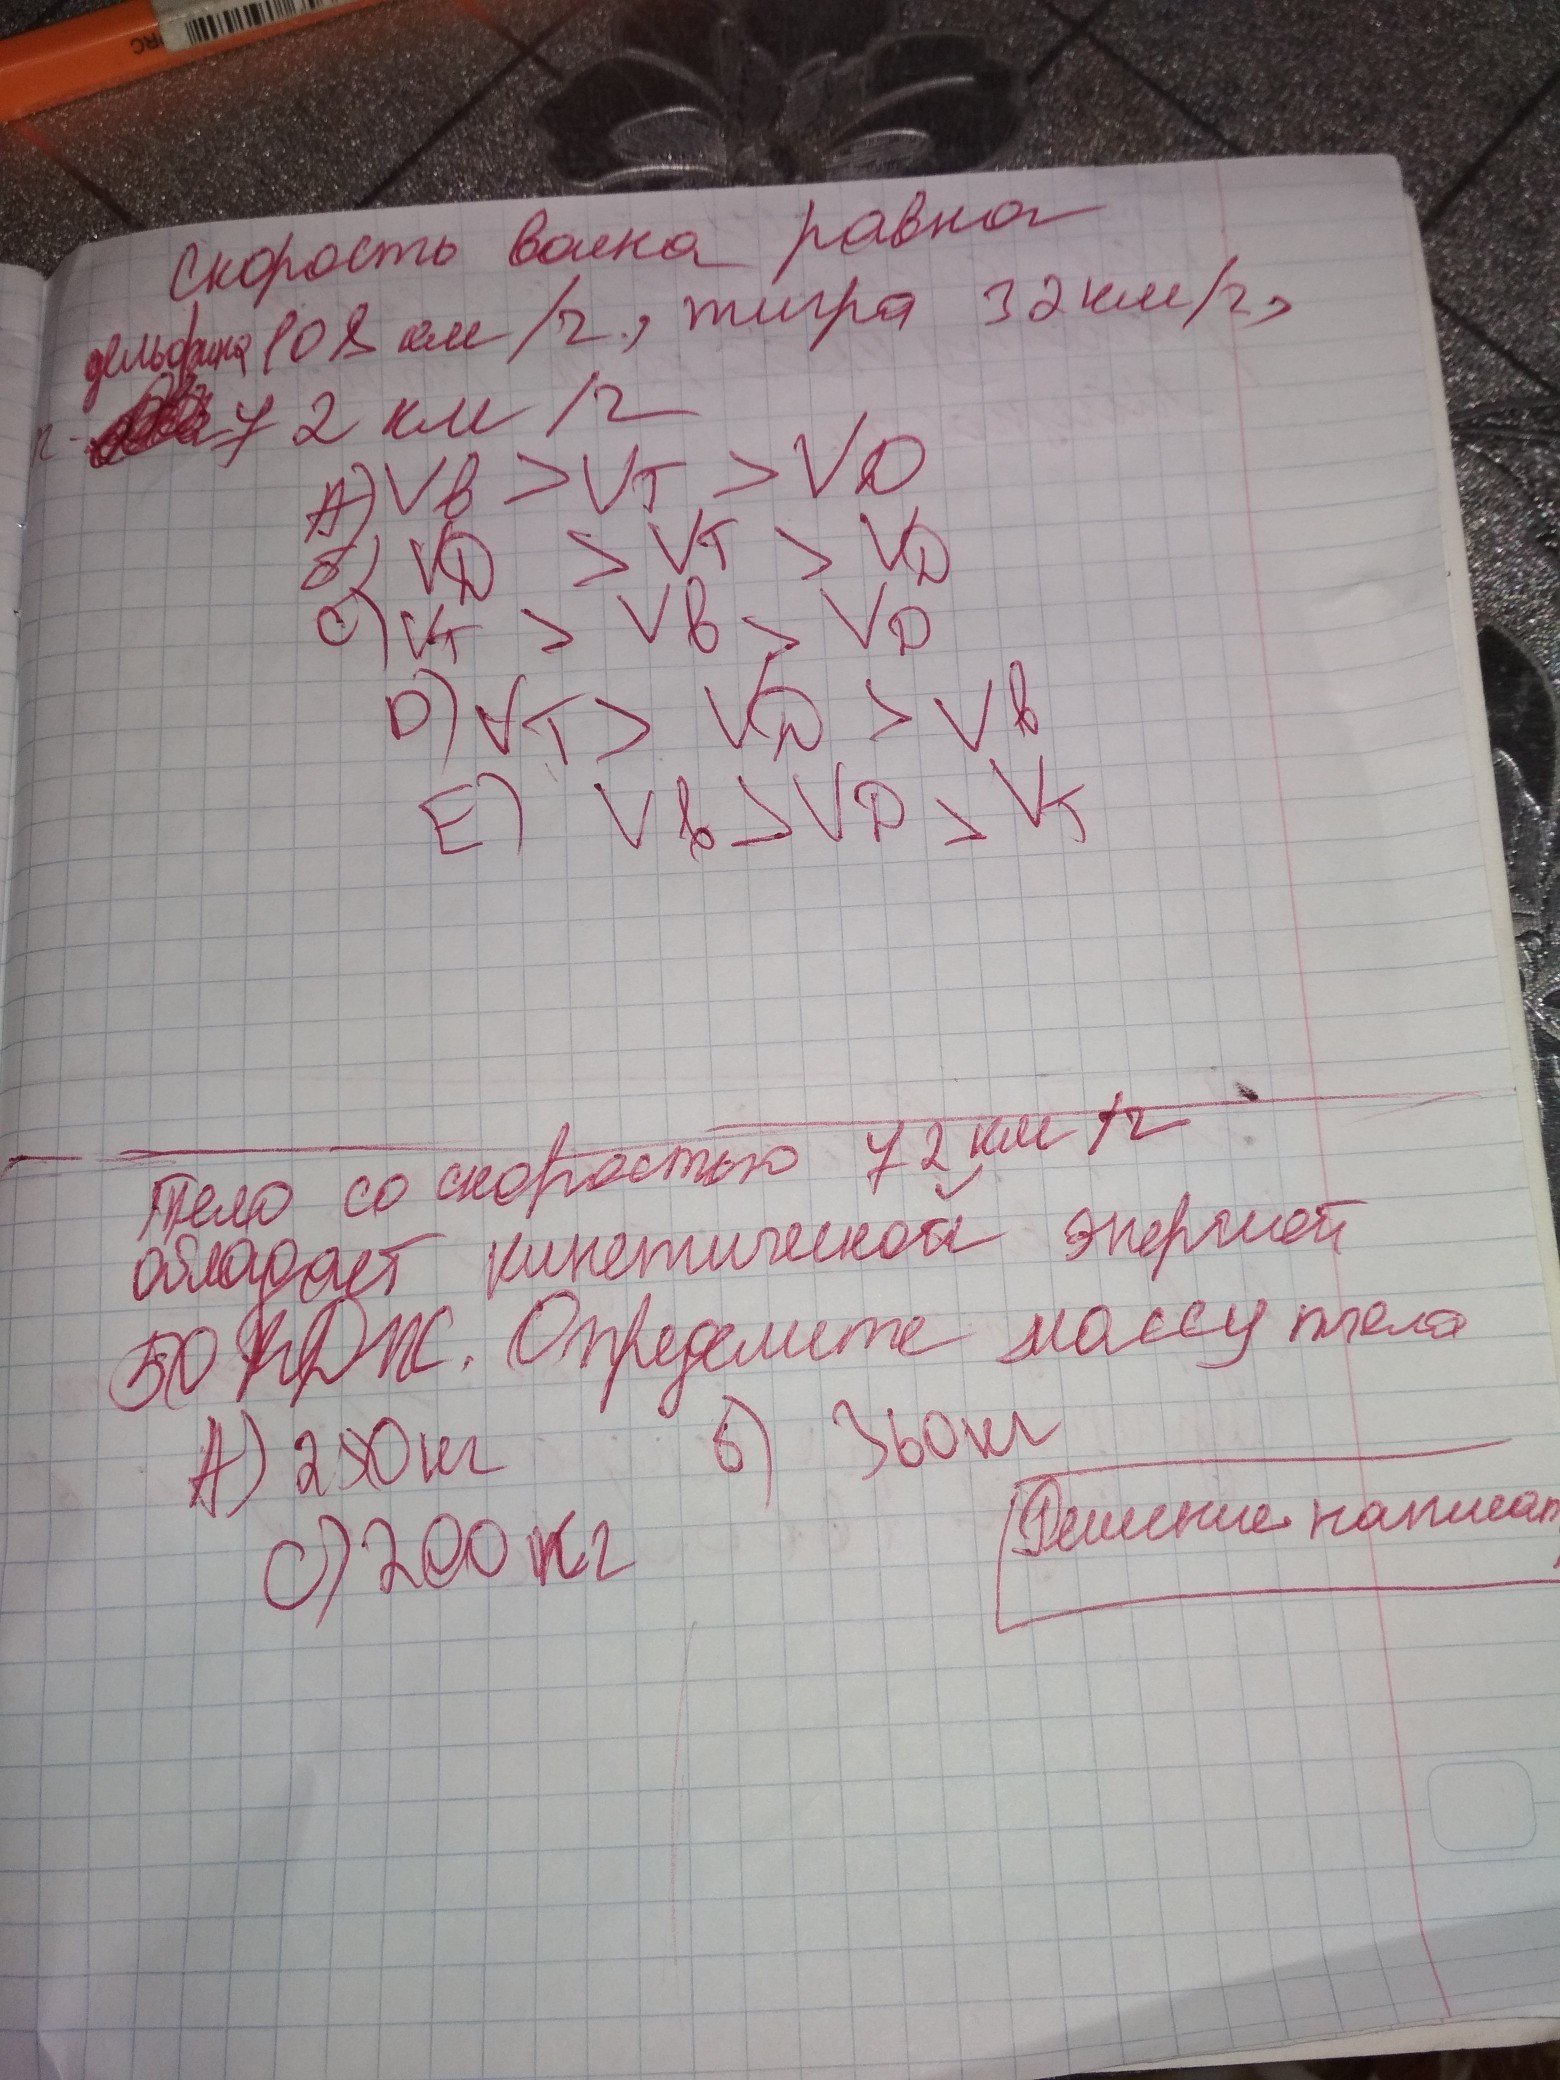 PRC
Скорость волка равна
108 км/ч., тигра 32 км/ч,
дельфина 72 км/ч
А) Vв > Vт > VД
б) VД > Vт > VД
С) Vт > Vв > VД
D) Vт > VД > Vв
E) Vв > VД > Vт
Тело со скоростью 72 км/ч
обладает кинетической энергией
50 КДж. Определите массу тела
А) 250 кг б) 360 кг
С) 200 кг
Решение написат